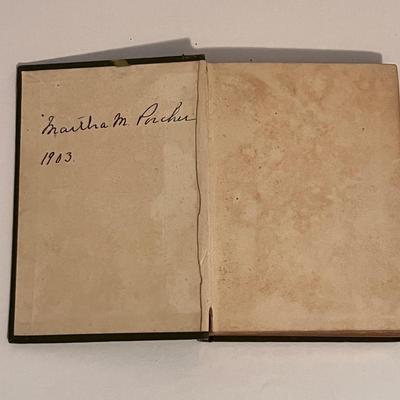 Martha M. Porcher
1903.